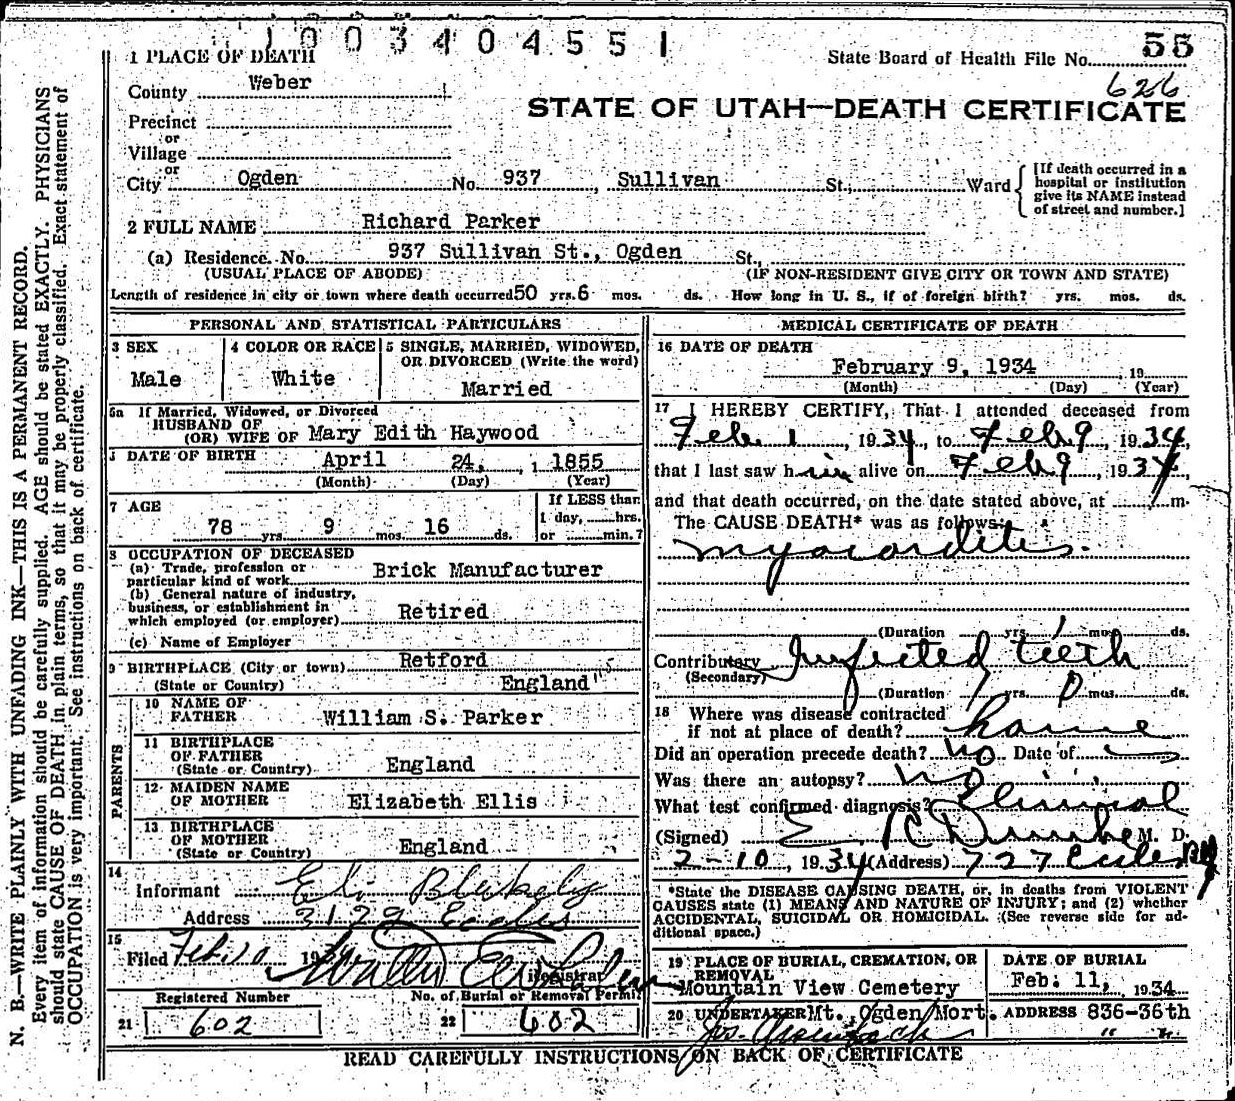 1003404551
1 PLACE OF DEATH
State Board of Health File No. 55
County Weber
626
STATE OF UTAH—DEATH CERTIFICATE
Precinct
or
Village
or
City Ogden No. 937, Sullivan St., Ward
[If death occurred in a
hospital or institution
give its NAME instead
of street and number.]
2 FULL NAME Richard Parker
(a) Residence. No. 937 Sullivan St., Ogden St.,
(USUAL PLACE OF ABODE) (IF NON-RESIDENT GIVE CITY OR TOWN AND STATE)
Length of residence in city or town where death occurred 50 yrs. 6 mos. ds. How long in U. S., if of foreign birth? yrs. mos. ds.
PERSONAL AND STATISTICAL PARTICULARS
3 SEX
Male
4 COLOR OR RACE
White
5 SINGLE, MARRIED, WIDOWED,
OR DIVORCED (Write the word)
Married
5a If Married, Widowed, or Divorced
HUSBAND OF
(OR) WIFE OF Mary Edith Haywood
DATE OF BIRTH April 24, 1855
(Month) (Day) (Year)
7 AGE
78 yrs. 9 mos. 16 ds.
If LESS than
1 day, hrs.
or min.?
8 OCCUPATION OF DECEASED
(a) Trade, profession or
particular kind of work Brick Manufacturer
(b) General nature of industry,
business, or establishment in
which employed (or employer) Retired
(c) Name of Employer
9 BIRTHPLACE (City or town) Retford
(State or Country) England
PARENTS
10 NAME OF
FATHER William S. Parker
11 BIRTHPLACE
OF FATHER
(State or Country) England
12 MAIDEN NAME
OF MOTHER Elizabeth Ellis
13 BIRTHPLACE
OF MOTHER
(State or Country) England
14
Informant Eli Blakely
Address Eccles
15
Filed Feb 10 193
Registrar
Registered Number
21 602
No. of Burial or Removal Permit
22 602
MEDICAL CERTIFICATE OF DEATH
16 DATE OF DEATH
February 9, 1934 19
(Month) (Day) (Year)
17 I HEREBY CERTIFY, That I attended deceased from
Feb. 1, 1934, to Feb 9, 1934,
that I last saw him alive on Feb 9, 1934
and that death occurred, on the date stated above, at m.
The CAUSE DEATH* was as follows:
Myocarditis.
(Duration yrs. 1 mos. ds.
Contributary Infected teeth
(Secondary)
(Duration yrs. mos. ds.
18 Where was disease contracted
if not at place of death? home
Did an operation precede death? No Date of
Was there an autopsy? No
What test confirmed diagnosis? Clinical
(Signed) M. D.
2-10, 1934 (Address) 727 Eccles Bldg
*State the DISEASE CAUSING DEATH, or, in deaths from VIOLENT
CAUSES state (1) MEANS AND NATURE OF INJURY; and (2) whether
ACCIDENTAL, SUICIDAL OR HOMICIDAL. (See reverse side for ad-
ditional space.)
19 PLACE OF BURIAL, CREMATION, OR
REMOVAL
Mountain View Cemetery
DATE OF BURIAL
Feb: 11, 1934
20 UNDERTAKER Mt. Ogden Mort. ADDRESS 836-36th
" "
READ CAREFULLY INSTRUCTIONS ON BACK OF CERTIFICATE
N. B.—WRITE PLAINLY WITH UNFADING INK—THIS IS A PERMANENT RECORD.
Every item of information should be carefully supplied. AGE should be stated EXACTLY. PHYSICIANS
should state CAUSE OF DEATH in plain terms, so that it may be properly classified. Exact statement of
OCCUPATION is very important. See instructions on back of certificate.